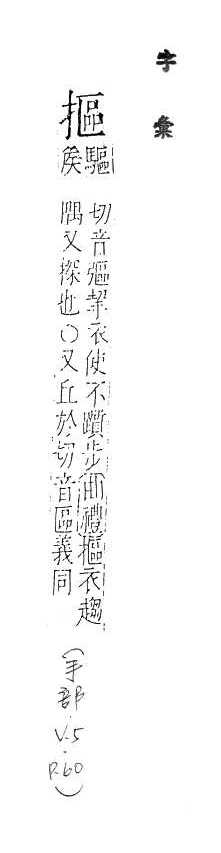 字彙
摳
驅
矦
切音彄挈衣使不躓步曲禮摳衣趨
隅又探也〇又丘於切音區義同
(手部 V.5. P.60)